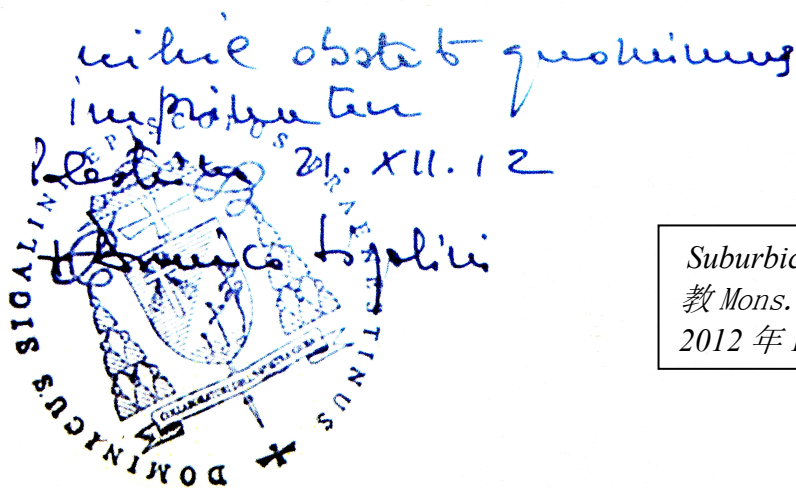 nihil obstat quominus
imprimatur
Palestrina 21. XII. 12
+ Domenico Sigalini
DOMINICUS SIGALINI EPISCOPUS PRAENESTINUS
Suburbic
教 Mons.
2012 年 1